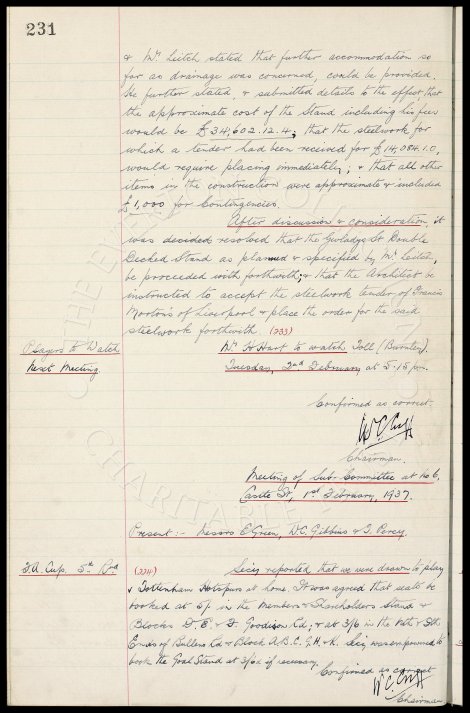 231
& Mr. Leitch stated that further accommodation so
far as drainage was concerned, could be provided.
He further stated, & submitted details to the effect that
the approximate cost of the Stand including his fees
would be £34,602.12.4; that the steelwork for
which a tender had been received for £14,084.1.0,
would require placing immediately; & that all other
items in the construction were approximate & included
£1,000 for Contingencies.
After discussion & consideration, it
was decided resolved that the Gwladys St Double
Decked Stand as planned & specified by Mr Leitch,
be proceeded with forthwith; & that the Architect be
instructed to accept the steelwork tender of Francis
Morton's of Liverpool & place the order for the said
steelwork forthwith (233)
Players to Watch
Next Meeting.
Mr H Hart to watch Toll (Burnley).
Tuesday, 2nd February at 5.15 pm.
Confirmed as correct.
W. C. Cuff
Chairman.
Meeting of Sub-Committee at No 6,
Castle St, 1st February, 1937.
Present:- Messrs E Green, W.C. Gibbins & J. Percy.
F.A. Cup, 5th Rnd
(224) Secy reported that we were drawn to play
v Tottenham Hotspurs at home. It was agreed that seats be
booked at 5/- in the Members & Shareholders Stand &
Blocks D. E. & F. Goodison Rd; & at 3/6 in the Nth & Sth
Ends of Bullens Rd & Block A. B. C. G. H. & K. Secy was empowered to
book the Goal Stand at 3/6d if necessary.
Confirmed as correct
W. C. Cuff
Chairman